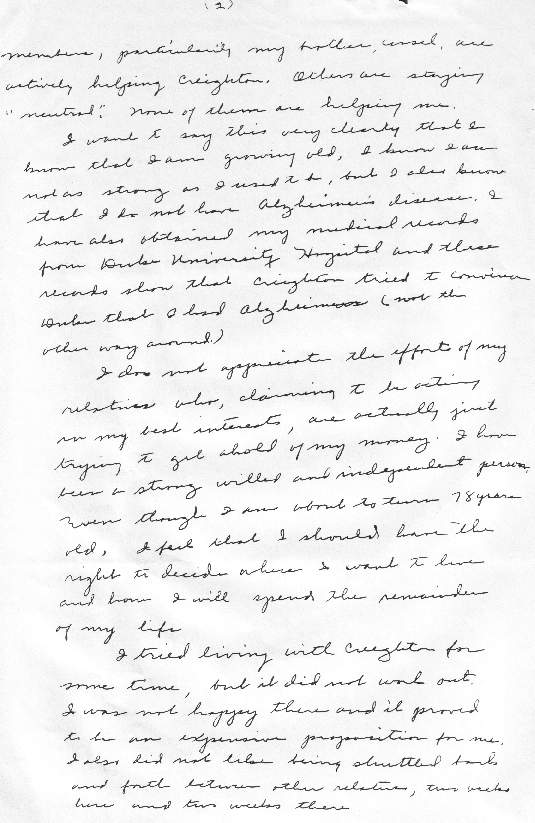 (2)
members, particularily my brother, Ursel, are
actively helping Creighton. Others are staying
"neutral". None of them are helping me.
I want to say this very clearly that I
know that I am growing old, I know I am
not as strong as I used to be, but I also know
that I do not have Alzheimer's disease. I
have also obtained my medical records
from Duke University Hospital and these
records show that Creighton tried to convince
Duke that I had Alzheimers (not the
other way around.)
I do not appreciate the efforts of my
relatives who, claiming to be acting
in my best interests, are actually just
trying to get ahold of my money. I have
been a strong willed and independent person,
Even though I am about to turn 78 years
old, I feel that I should have the
right to decide where I want to live
and how I will spend the remainder
of my life
I tried living with Creighton for
some time, but it did not work out.
I was not happy there and it proved
to be an expensive proposition for me.
I also did not like being shuttled back
and forth between other relatives, two weeks
here and two weeks there